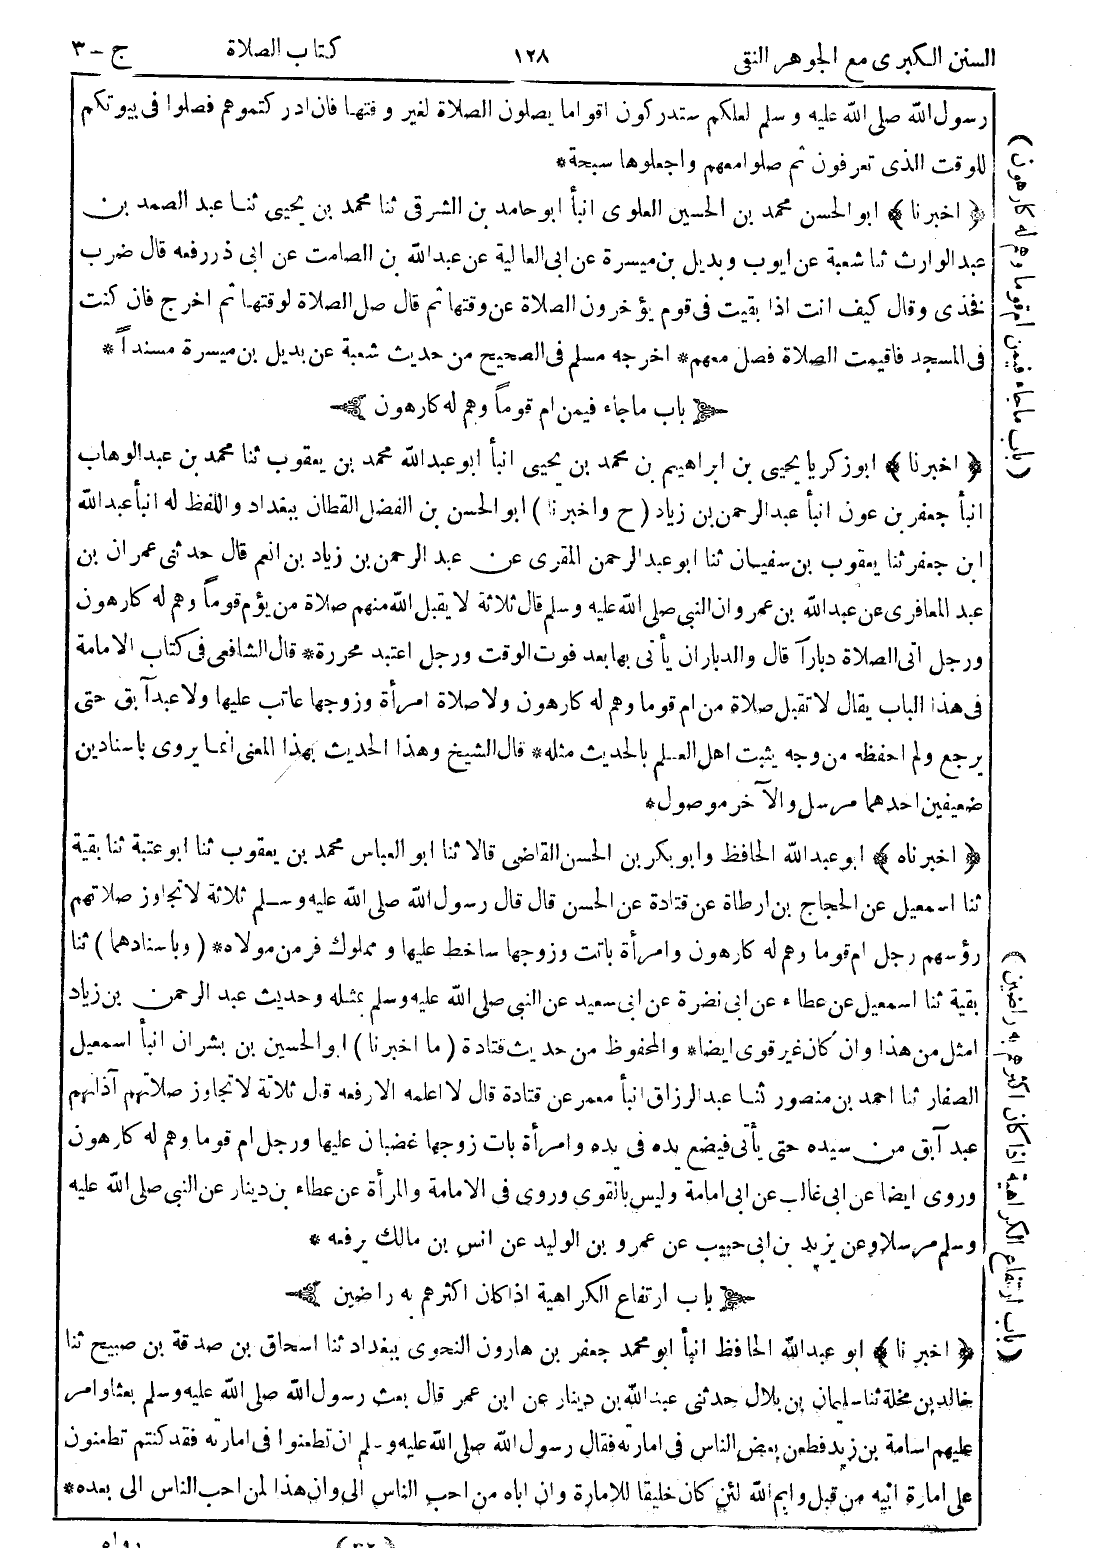 السنن الكبرى مع الجوهر النقى ١٢٨ كتاب الصلاة ج - ٣
رسول الله صلى الله عليه و سلم لعلكم ستدركون اقواما يصلون الصلاة لغير وقتها فان ادركتموهم فصلوا فى بيوتكم
للوقت الذى تعرفون ثم صلوا معهم واجعلوها سبحة*
﴿ اخبرنا ﴾ ابو الحسن محمد بن الحسين العلوى انبأ ابو حامد بن الشرقى ثنا محمد بن يحيى ثنا عبد الصمد بن
عبد الوارث ثنا شعبة عن ايوب وبديل بن ميسرة عن ابى العالية عن عبد الله بن الصامت عن ابى ذر رفعه قال ضرب
فخذى وقال كيف انت اذا بقيت فى قوم يؤخرون الصلاة عن وقتها ثم قال صل الصلاة لوقتها ثم اخرج فان كنت
فى المسجد فاقيمت الصلاة فصل معهم* اخرجه مسلم فى الصحيح من حديث شعبة عن بديل بن ميسرة مسنداً*
باب ماجاء فيمن ام قوماً وهم له كارهون
﴿ اخبرنا ﴾ ابو زكريا يحيى بن ابراهيم بن محمد بن يحيى انبأ ابو عبد الله محمد بن يعقوب ثنا محمد بن عبد الوهاب
انبأ جعفر بن عون انبأ عبد الرحمن بن زياد ( ح واخبرنا ) ابو الحسن بن الفضل القطان ببغداد واللفظ له انبأ عبد الله
ابن جعفر ثنا يعقوب بن سفيان ثنا ابو عبد الرحمن المقرى عن عبد الرحمن بن زياد بن انعم قال حدثنى عمران بن
عبد المعافرى عن عبد الله بن عمرو ان النبى صلى الله عليه وسلم قال ثلاثة لا يقبل الله منهم صلاة من يؤم قوماً وهم له كارهون
ورجل اتى الصلاة دباراً قال والدبار ان يأتى بها بعد فوت الوقت ورجل اعتبد محررة* قال الشافعى فى كتاب الامامة
فى هذا الباب يقال لا تقبل صلاة من ام قوما وهم له كارهون ولا صلاة امرأة وزوجها عاتب عليها ولا عبد آبق حتى
يرجع ولم احفظه من وجه يثبت اهل العلم بالحديث مثله* قال الشيخ وهذا الحديث بهذا المعنى انما يروى باسنادين
ضعيفين احدهما مرسل والآخر موصول*
﴿ اخبرناه ﴾ ابو عبد الله الحافظ وابو بكر بن الحسن القاضى قالا ثنا ابو العباس محمد بن يعقوب ثنا ابو عتبة ثنا بقية
ثنا اسمعيل عن الحجاج بن ارطاة عن قتادة عن الحسن قال قال رسول الله صلى الله عليه وسلم ثلاثة لا تجاوز صلاتهم
رؤسهم رجل ام قوما وهم له كارهون وامرأة باتت وزوجها ساخط عليها و مملوك فر من مولاه* ( وباسنادهما ) ثنا
بقية ثنا اسمعيل عن عطاء عن ابى نضرة عن ابى سعيد عن النبى صلى الله عليه وسلم بمثله وحديث عبد الرحمن بن زياد
امثل من هذا وان كان غير قوى ايضا* والمحفوظ من حديث قتادة ( ما اخبرنا ) ابو الحسين بن بشران انبأ اسمعيل
الصفار ثنا احمد بن منصور ثنا عبد الرزاق انبأ معمر عن قتادة قال لا اعلمه الا رفعه قال ثلاثة لا تجاوز صلاتهم آذانهم
عبد آبق من سيده حتى يأتى فيضع يده فى يده وامرأة بات زوجها غضبان عليها ورجل ام قوما وهم له كارهون
وروى ايضا عن ابى غالب عن ابى امامة وليس بالقوى وروى فى الامامة والمرأة عن عطاء بن دينار عن النبى صلى الله عليه
وسلم مرسلا وعن يزيد بن ابى حبيب عن عمرو بن الوليد عن انس بن مالك يرفعه *
باب ارتفاع الكراهية اذا كان اكثرهم به راضين
﴿ اخبرنا ﴾ ابو عبد الله الحافظ انبأ ابو محمد جعفر بن هارون النحوى ببغداد ثنا اسحاق بن صدقة بن صبيح ثنا
خالد بن مخلد ثنا سليمان بن بلال حدثنى عبد الله بن دينار عن ابن عمر قال بعث رسول الله صلى الله عليه وسلم بعثا وامر
عليهم اسامة بن زيد فطعن بعض الناس فى امارته فقال رسول الله صلى الله عليه وسلم ان تطعنوا فى امارته فقد كنتم تطعنون
على امارة ابيه من قبل وايم الله لئن كان خليقا للامارة وان اباه من احب الناس الى وان هذا لمن احب الناس الى بعده*
(باب ماجاء فيمن ام قوما وهم له كارهون)
(باب ارتفاع الكراهية اذا كان اكثرهم به راضين)
رواه